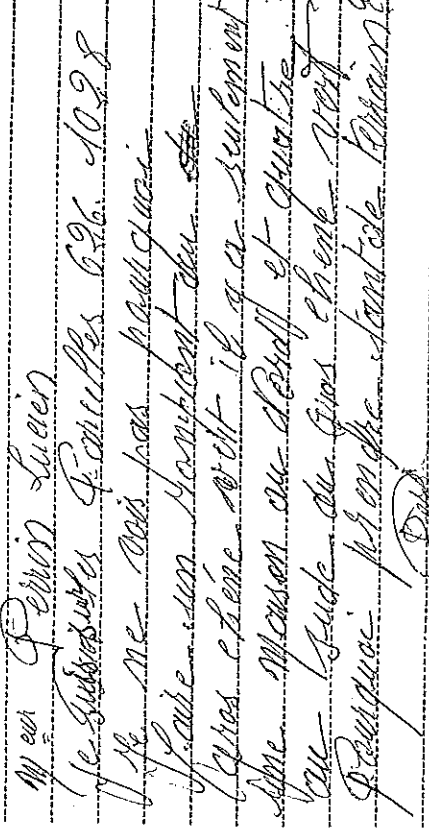 Meur Perrin Lucien
Je suis sur les Parcelles 696. 1028
Je ne vois pas pourquoi
faire un rompoint au
gros chêne vert il y a seulement
une maison au Nord et quatre
au sude du gros chene vert
Pourquoi prendre tant de terrain